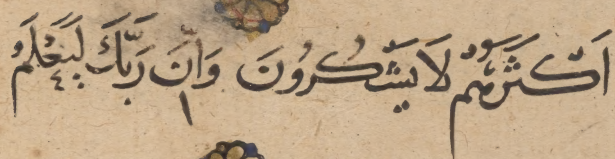 اَكْثَرَهُمْ لَا يَشْكُرُونَ وَاِنَّ رَبَّكَ لَيَعْلَمُ